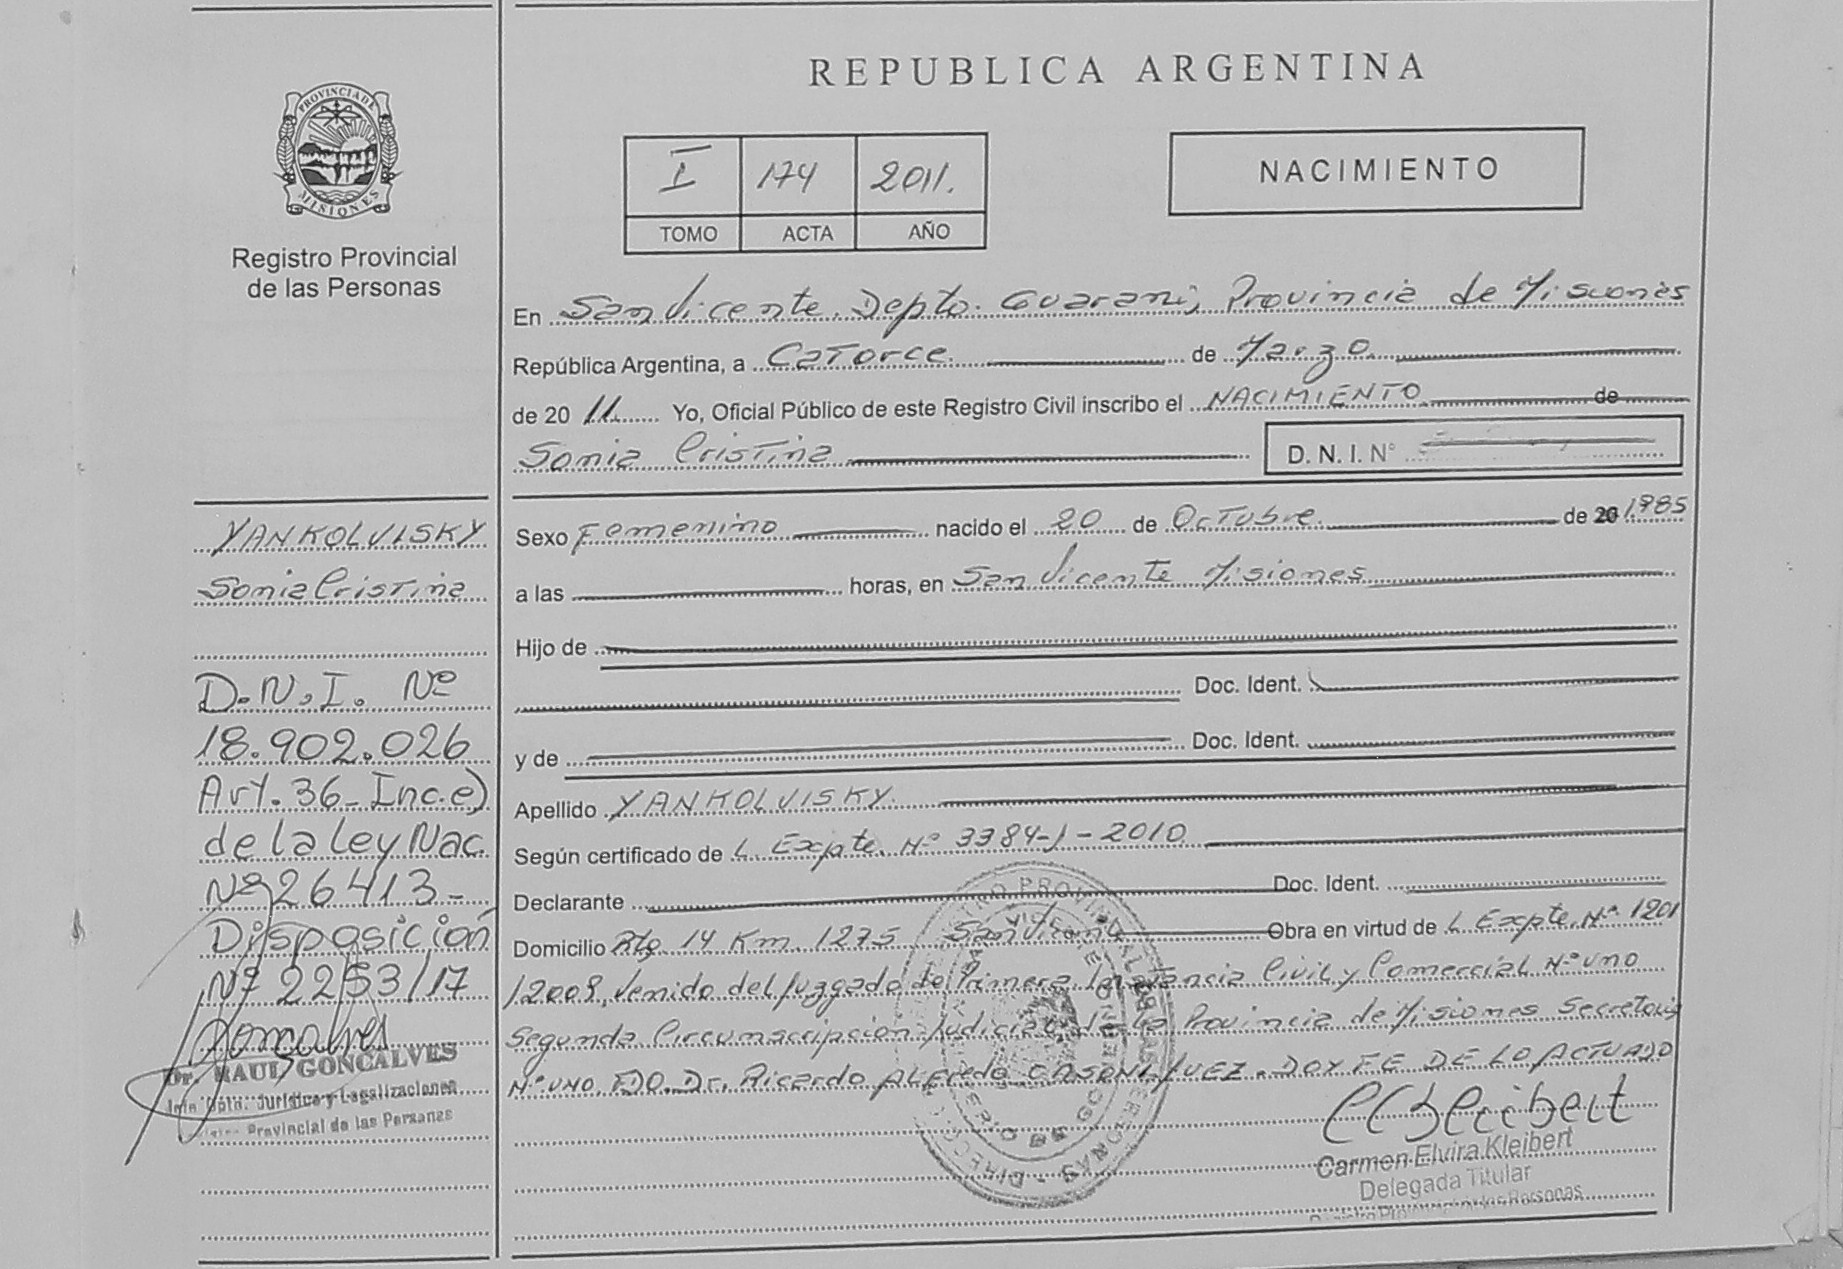 PROVINCIA DE
MISIONES
Registro Provincial
de las Personas
REPUBLICA ARGENTINA
I 174 2011.
TOMO ACTA AÑO
NACIMIENTO
En San Vicente. Depto. Guarani, Provincia de Misiones
República Argentina, a Catorce. de Marzo.
de 20 11 Yo, Oficial Público de este Registro Civil inscribo el NACIMIENTO de
Sonia Cristina D. N. I. N°
Sexo Femenino nacido el 20 de Octubre. de 20 1985
a las horas, en San Vicente Misiones
Hijo de
Doc. Ident.
y de Doc. Ident.
Apellido YANKOLVISKY.
Según certificado de L. Expte. Nº 3384-J-2010.
Declarante Doc. Ident.
Domicilio Rta 14 Km. 1275 San Vicente Obra en virtud de L. Expte. Nº 1201
/2009, Venido del Juzgado de Primera Instancia Civil y Comercial Nº uno
Segunda Circunscripcion Judicial de la Provincia de Misiones Secretaria
Nº uno. FDO. Dr. Ricardo Alfredo DOY FE DE LO ACTUADO
Carmen Elvira Kleibert
Delegada Titular
YANKOLVISKY
Sonia Cristina
D.N.I. Nº
18.902.026
Art. 36- Inc. e)
de la Ley Nac.
Nº 26413-
Disposición
Nº 2253/17
Goncalves
Dr. RAUL GONCALVES
Jefe Dpto. Jurídico y Legalizaciones
Provincial de las Personas